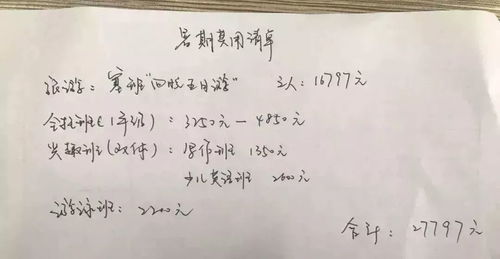 暑期费用清单
旅游：塞班"四晚五日游" 三人：16797元
全托班(1年级)：3250元—4850元
兴趣班(文体)：写作班 1350元
少儿英语班 2600元
游泳班：2200元
合计：27797元